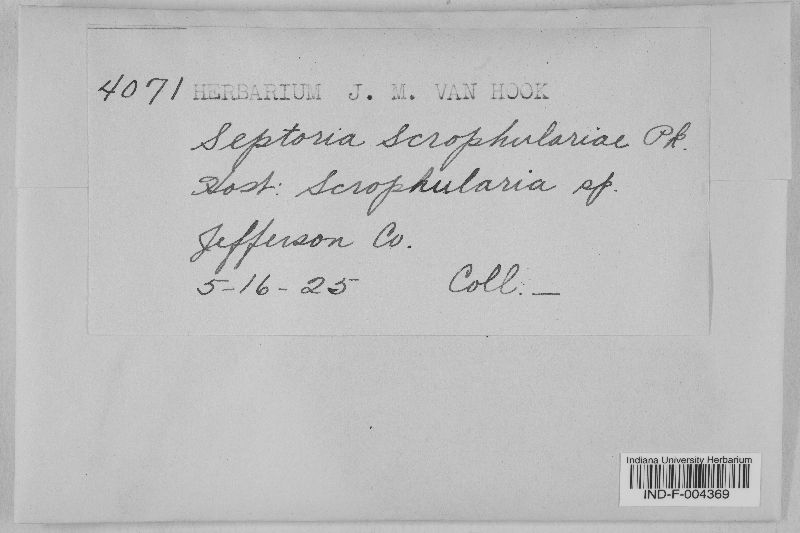 4071 HERBARIUM J. M. VAN HOOK
Septoria Scrophulariae Pk.
Host: Scrophularia sp.
Jefferson Co.
5-16-25 Coll. —
Indiana University Herbarium
IND-F-004369